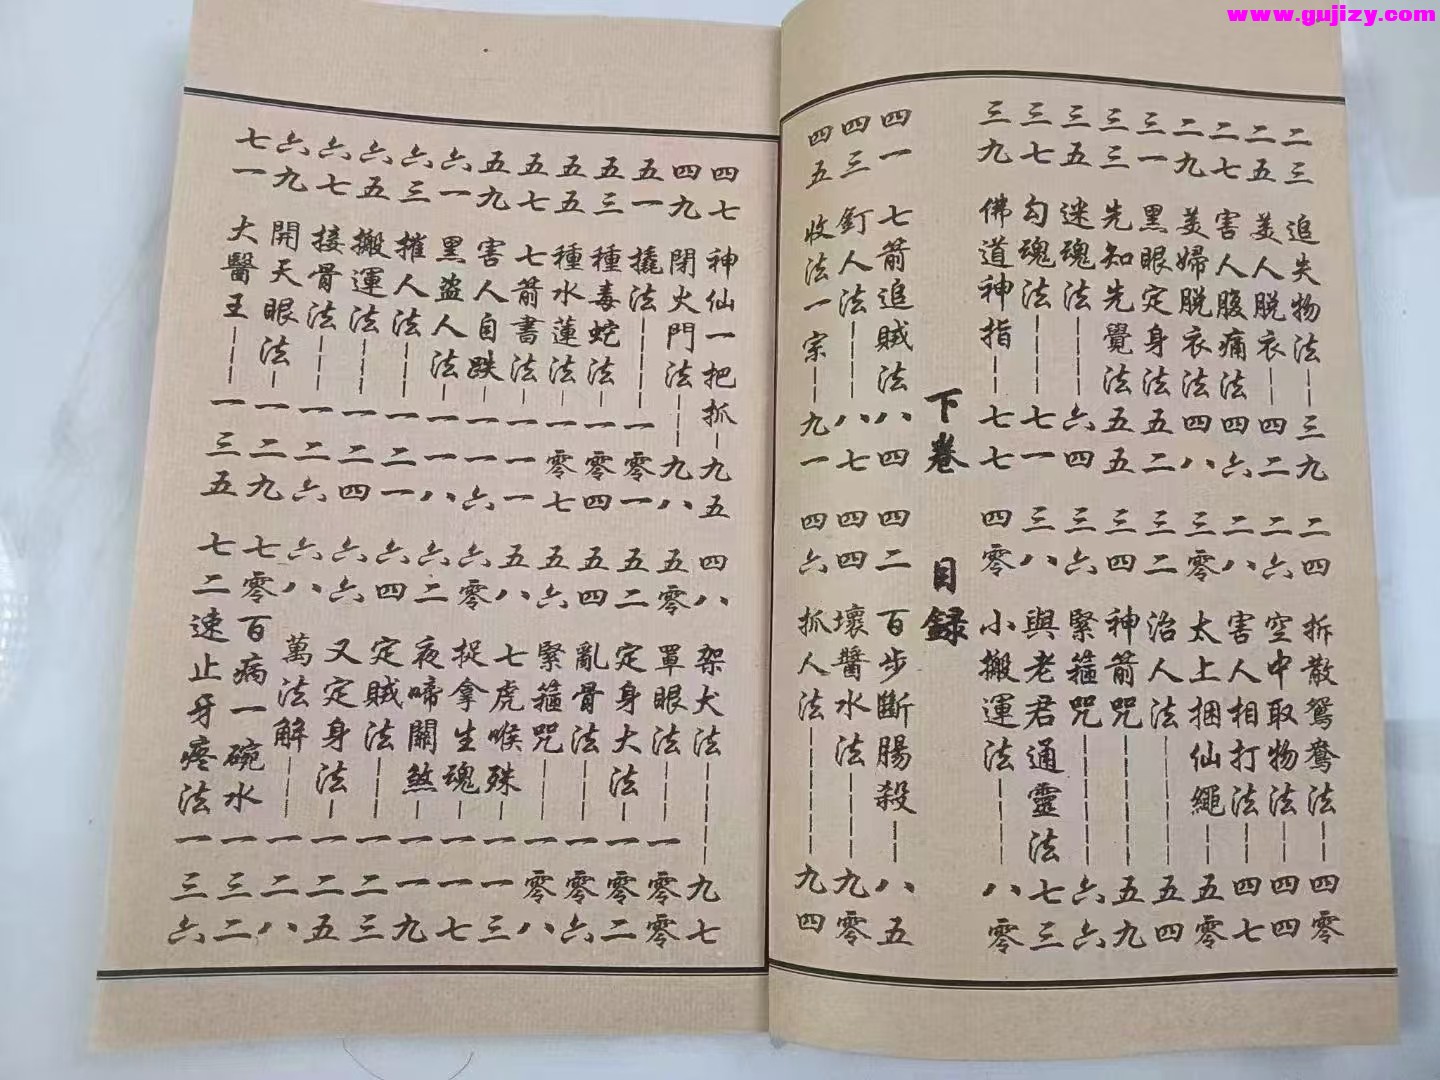 www.gujizy.com
二三追失物法三九二四拆散鴛鴦法四零
二五美人脱衣四二二六空中取物法四四
二七害人腹痛法四六二八害人相打法四七
二九美婦脱衣法四八三零太上捆仙繩五零
三一黑眼定身法五二三二治人法五四
三三先知先覺法五五三四神箭咒五九
三五迷魂法六四三六緊箍咒六六
三七勾魂法七一三八與老君通靈法七三
三九佛道神指七七四零小搬運法八零
下卷 目録
四一七箭追賊法八四四二百步斷腸殺八五
四三釘人法八七四四壞醬水法九零
四五收法一宗九一四六抓人法九四
四七神仙一把抓九五四八架犬法九七
四九閉火門法九八五零罩眼法一零零
五一撬法一零一五二定身大法一零二
五三種毒蛇法一零四五四亂骨法一零六
五五種水蓮法一零七五六緊箍咒一零八
五七七箭書法一一一五八七虎喉殊一一三
五九害人自跌一一六六零捉拿生魂一一七
六一黑盗人法一一八六二夜啼關煞一一九
六三摧人法一二一六四定賊法一二三
六五搬運法一二四六六又定身法一二五
六七接骨法一二六六八萬法解一二八
六九開天眼法一二九七零百病一碗水一三二
七一大醫王一三五七二速止牙疼法一三六